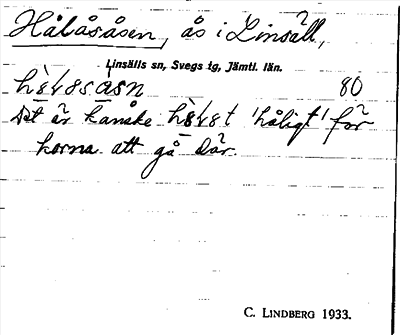 Hålåsåsen, ås i Linsäll,
Linsälls sn, Svegs tg, Jämtl. län.
80
Det är kanske 'håligt' för
horna att gå där.
C. LINDBERG 1933.